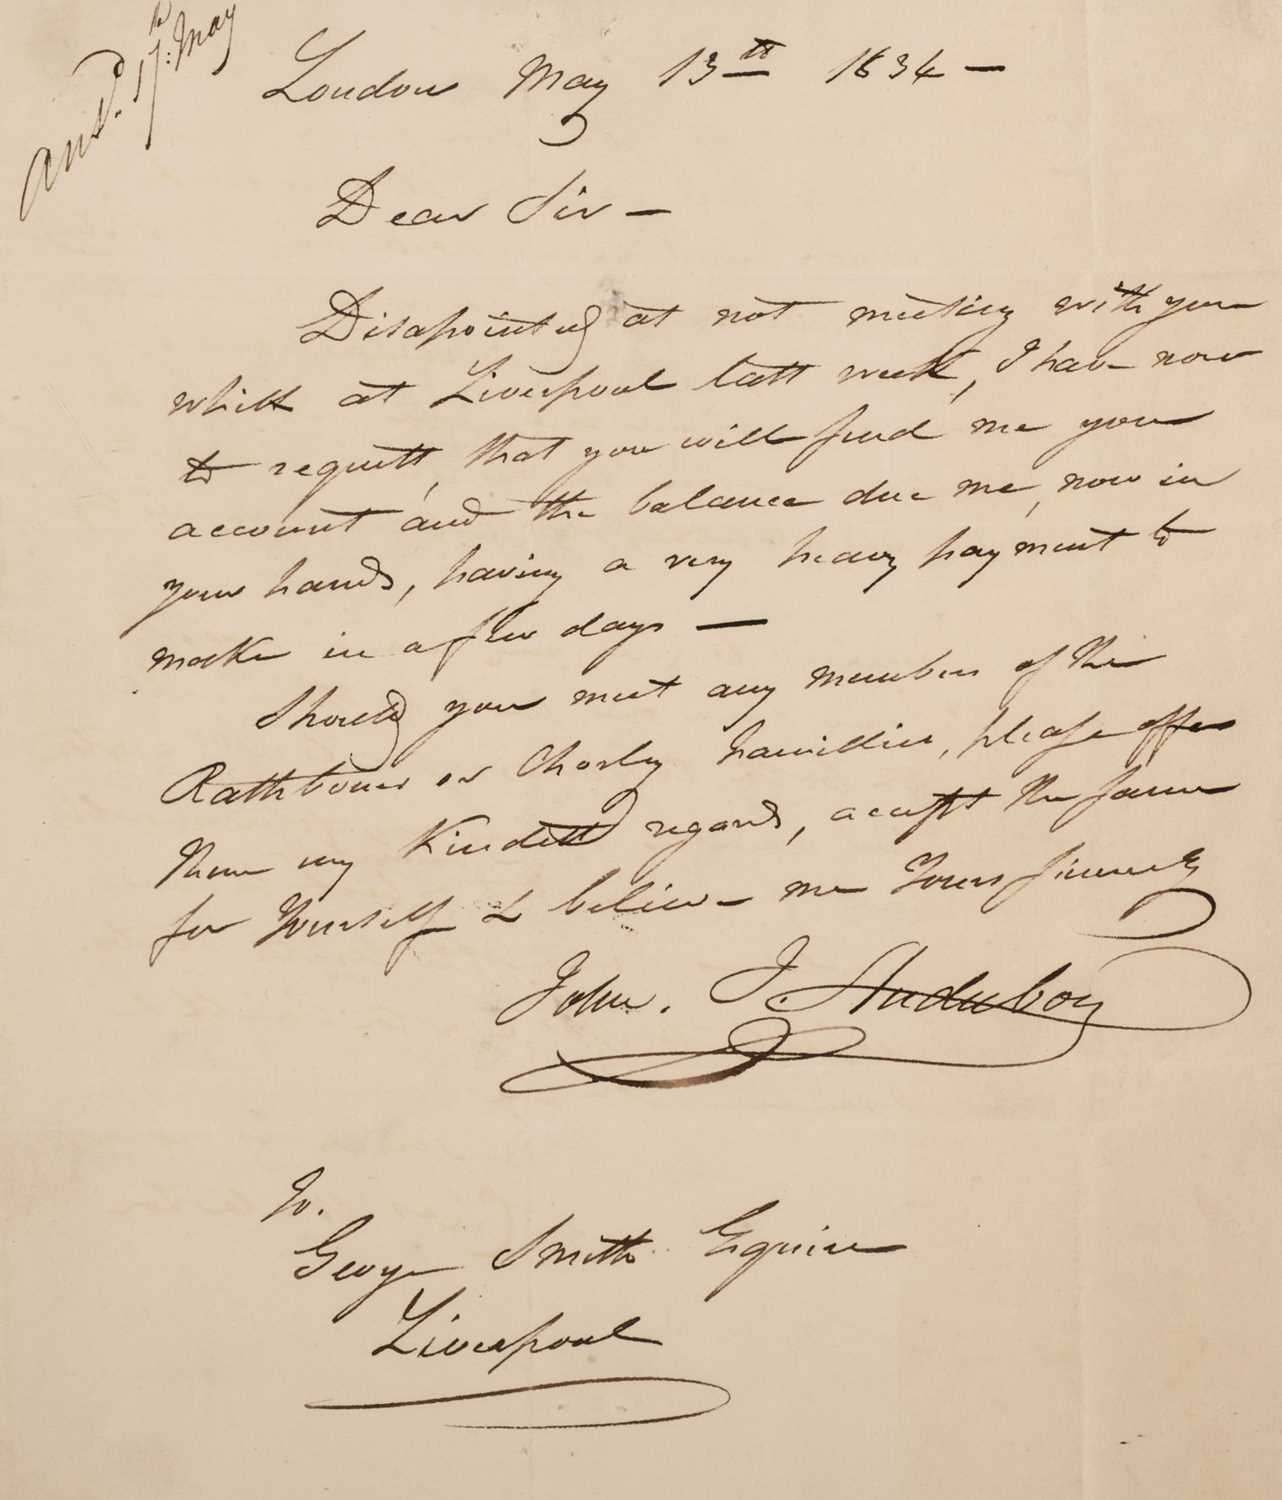 Ansd. 17th: May
London May 13th 1834 —
Dear Sir —
Disapointed at not meeting with you
whilst at Liverpool last week, I have now
to request, that you will send me your
account and the balance due me, now in
your hands, having a very heavy payment to
make in a few days —
Should you meet any members of the
Rathbones or Chorley families, please offer
them my kindest regards, accept the same
for Yourself & believe me Yours sincerely
John. J. Audubon
To.
George Smith Esquire
Liverpool